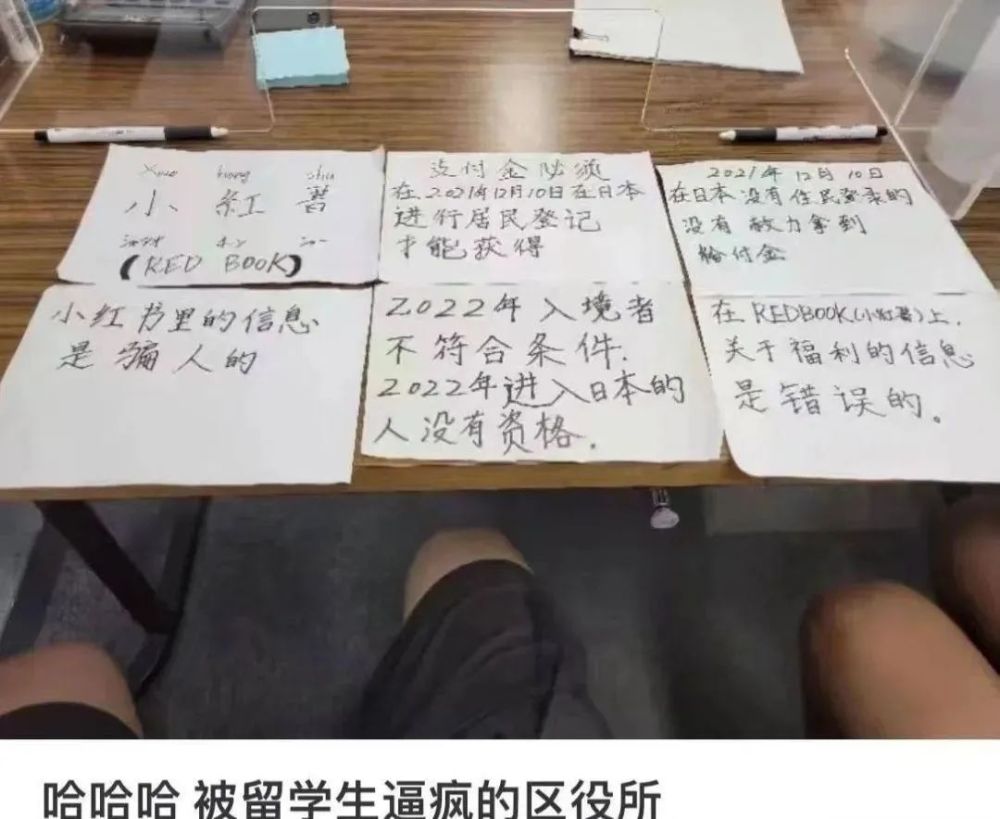 Xiao hong shu
小 紅 書
(RED BOOK)
支付金必须
在2021年12月10日在日本
进行居民登记
才能获得
2021年12月10日
在日本没有住民登录的
没有效力拿到
给付金
小红书里的信息
是骗人的
2022年入境者
不符合条件.
2022年进入日本的
人没有资格.
在REDBOOK(小紅書)上.
关于福利的信息
是错误的。
哈哈哈 被留学生逼疯的区役所